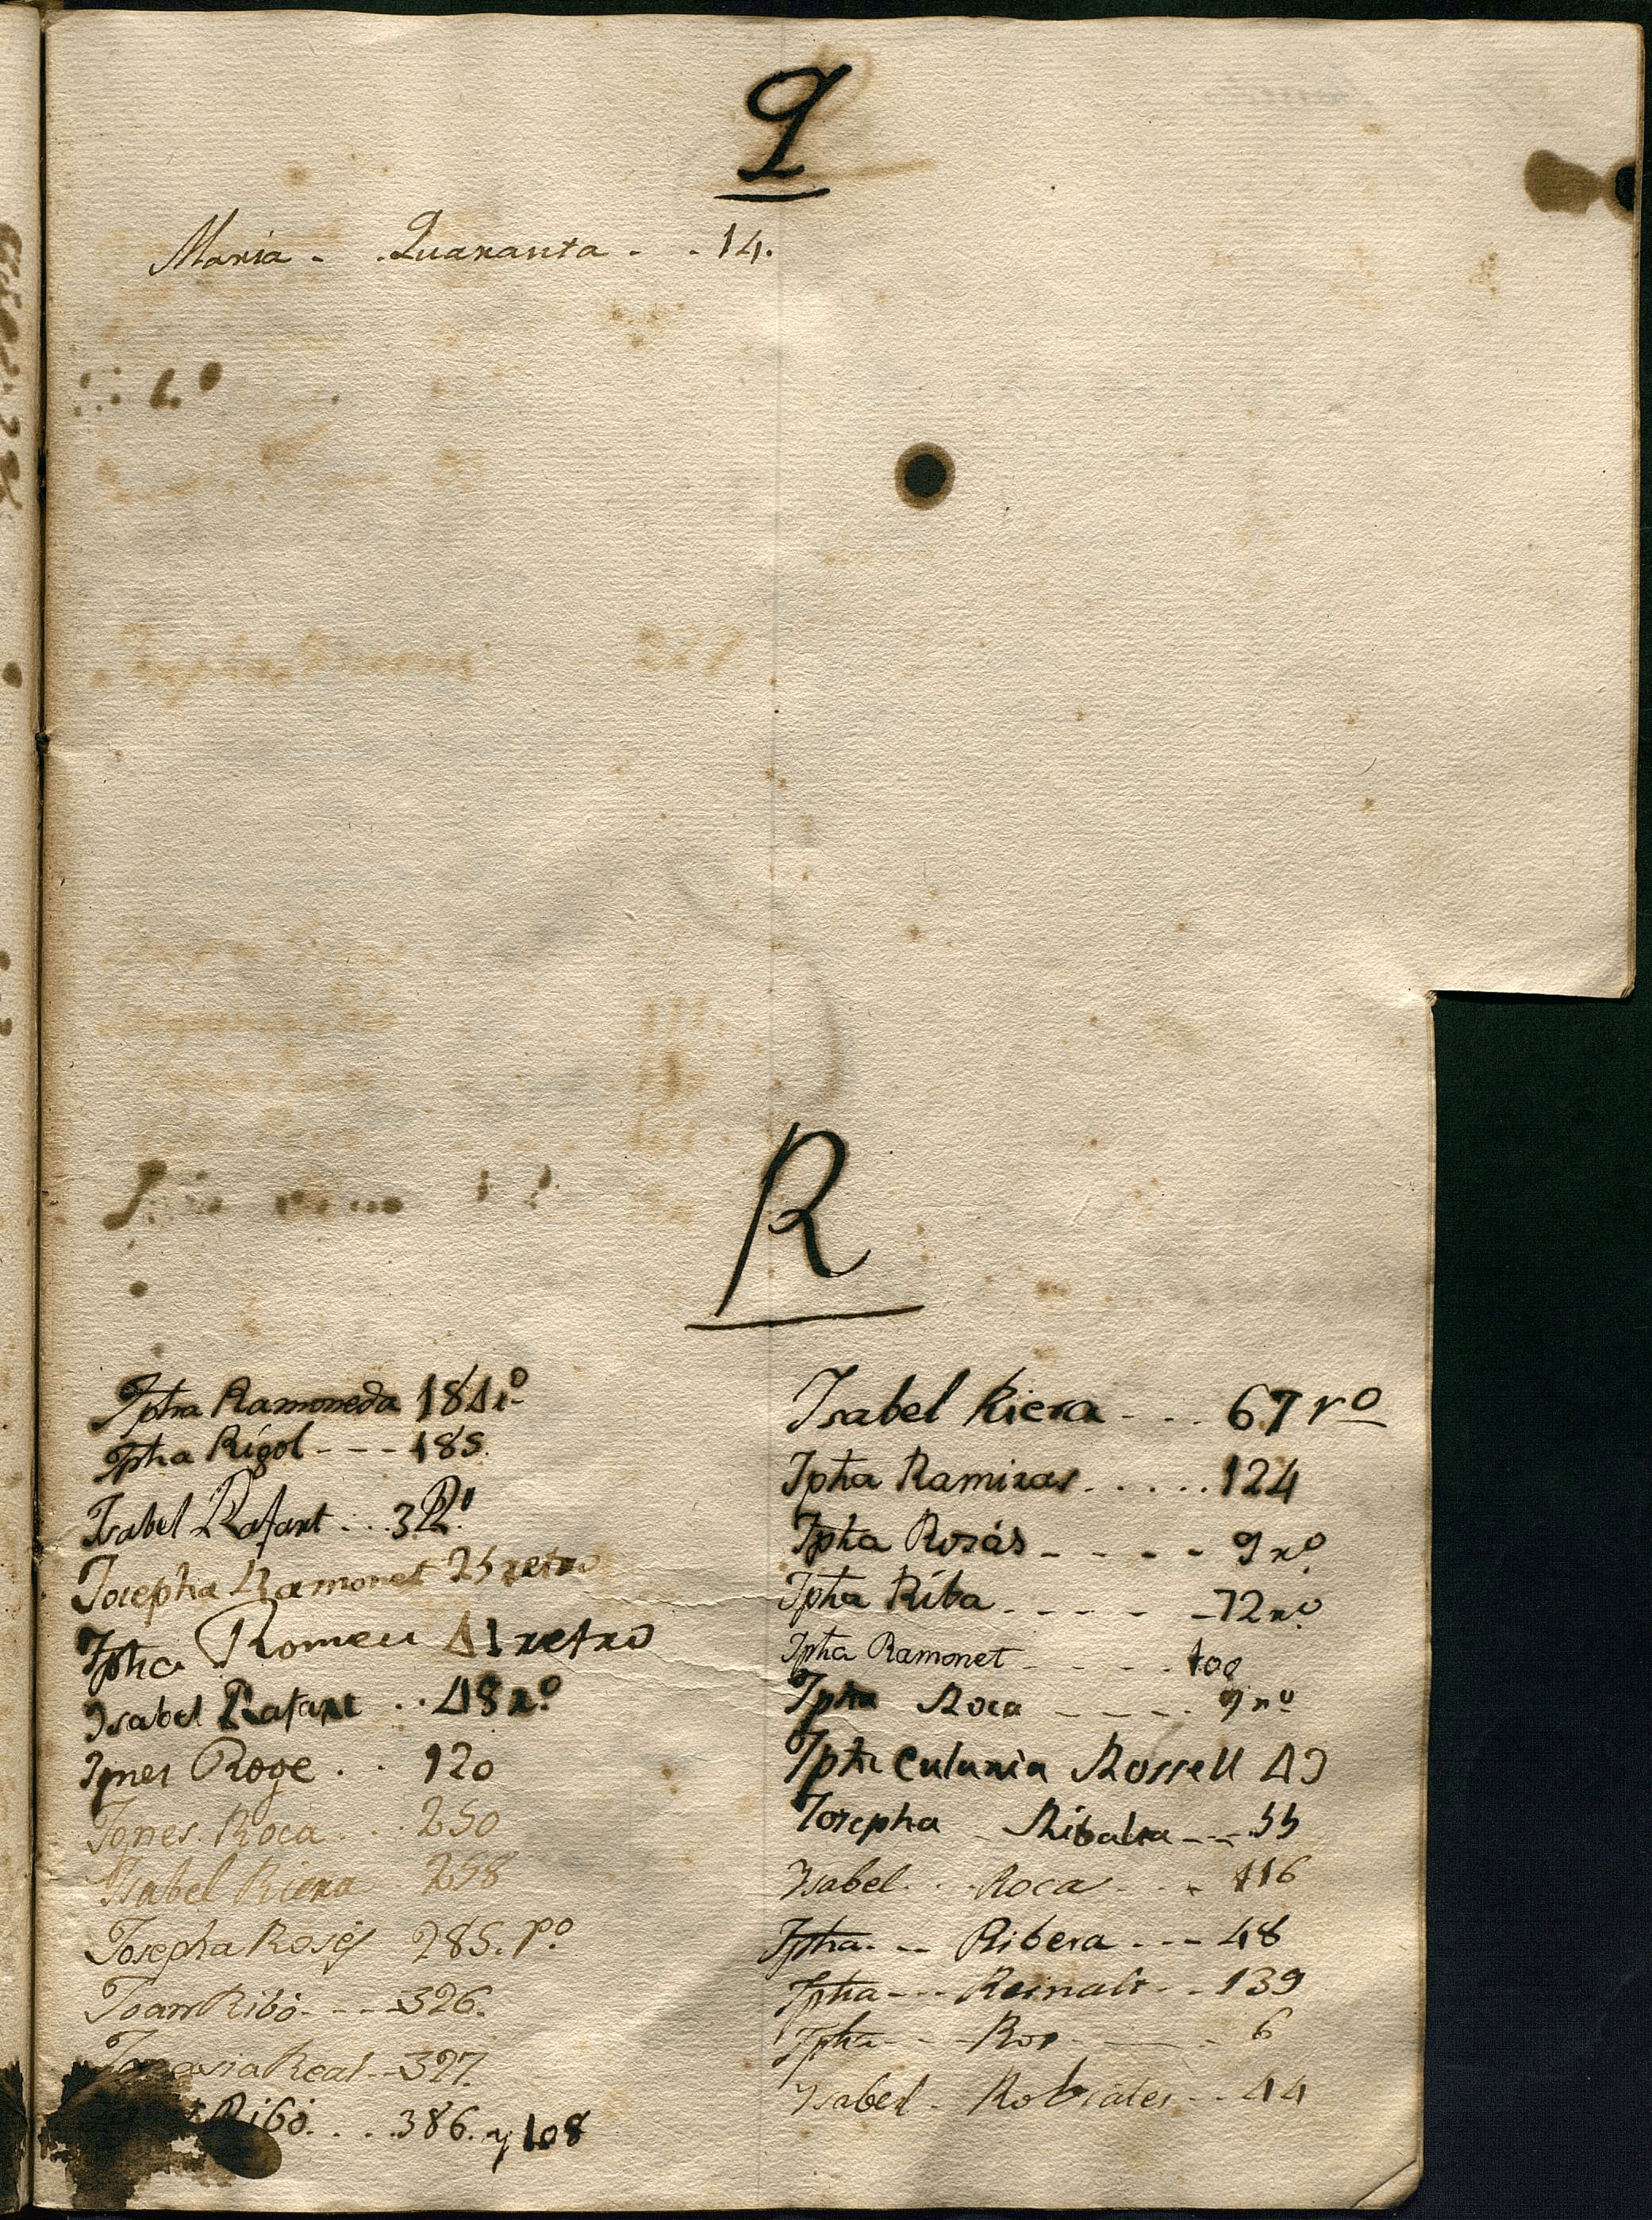 Q
Maria - . Quaranta - . 14.
R
Jpha Ramoneda 184 rº
Jpha Rigol --- 185.
Isabel Rafart ... 3 Rº
Josepha Ramonet 25 retro
Jpha Romeu 41 retro
Isabel Rafart .. 48 rº
Ignes Roge . . 120
Ignes Roca .. 250
Isabel Riera 258
Josepha Rosés 285. pº
Joan Ribó. --- 326.
Ignasia Real -- 327.
Ribó. ... 386. y 108
Isabel Riera - .. 67 rº
Jpha Ramiras. . . . . 124
Jpha Rosás - - - - 9 rº
Jpha Riba - - - - - 72 rº
Jpha Ramonet - - - - . 100
Jpha Roca - - - - . 9 rº
Jpha Eularia Rossell 49
Josepha - Ribalta --- 55
Isabel . . Roca - . . 116
Jpha. -- Ribera --- 48
Jpha --- Reinalt - - 139
Jpha - - - Ros - - - 6
Isabel - - 44